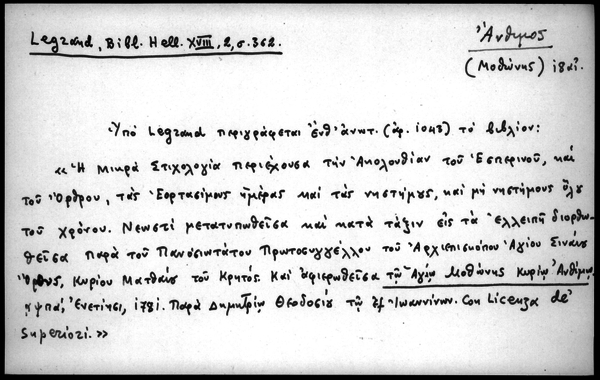 Legrand, Bibl. Hell. XVIII, 2, σ. 362.
Ἄνθιμος
(Μοθώνης) 18 αἰ.
Ὑπό Legrand περιγράφεται ἐνθ' ἀνωτ. (ἀρ. 1043) τό βιβλίον:
«Ἡ Μικρά Στιχολογία περιέχουσα τήν Ἀκολουθίαν τοῦ Ἑσπερινοῦ, καί
τοῦ Ὄρθρου, τάς Ἑορτασίμους ἡμέρας καί τάς νηστήμους, καί μή νηστήμους ὅλου
τοῦ χρόνου. Νεωστί μετατυπωθεῖσα καί κατά τάξιν εἰς τά ἐλλειπῆ διορθω-
θεῖσα παρά τοῦ Πανοσιωτάτου Πρωτοσυγγέλλου τοῦ Ἀρχιεπισκόπου Ἁγίου Σιναίου
Ὄρους, Κυρίου Ματθαίου τοῦ Κρητός. Καί ἀφιερωθεῖσα τῷ Ἁγίῳ Μοθώνης Κυρίῳ Ἀνθίμῳ,
αψπα', Ἐνετίησι, 1781. Παρά Δημητρίῳ Θεοδοσίου τῷ ἐξ Ἰωαννίνων. Con Licenza de'
Superiori.»